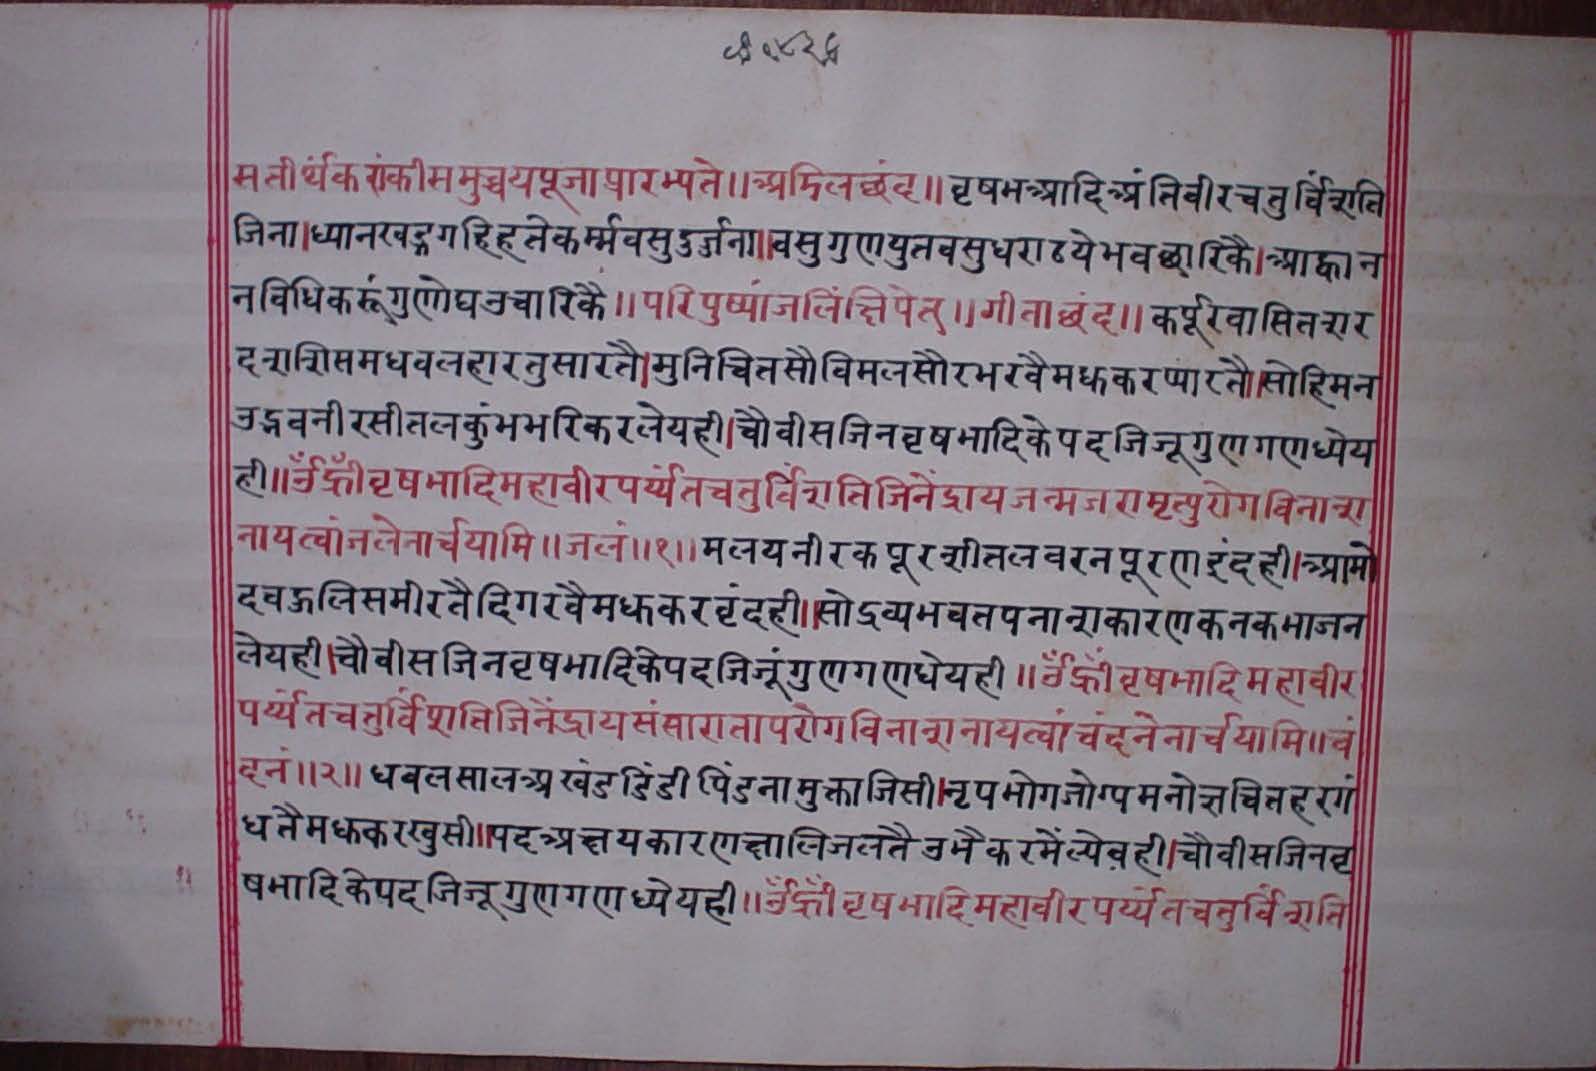 सतीर्थंकरांकीसमुच्चयपूजाप्रारम्पते॥अडिलछंद॥वृषभआदिअंतिवीरचतुर्विंशति
जिना।ध्यानखड्गगहिहतेकर्म्मवसुदुर्जना॥वसुगुणयुतवसुधराठयेभवछारिकै।आह्वान
नविधिकरूंगुणोघउचारिकै॥परिपुष्पांजलिंक्षिपेत्॥गीताछंद॥कर्पूरवासितशर
दशशिसमधवलहारतुसारतै।मुनिचितसौविमलसौरभरवैमधुकरप्पारतै।सोहिमन
उद्भवनीरसीतलकुंभभरिकरलेयही।चौवीसजिनवृषभादिकेपदजिजूगुणगणध्येय
ही॥ॐह्रीँवृषभादिमहावीरपर्य्यंतचतुर्विंशतिजिनेंद्रायजन्मजरामृत्युरोगविनाश
नायत्वांजलेनार्चयामि॥जलं॥१॥मलयनीरकपूरशीतलवरनपूरणइंदही।आमो
दवऊलिसमीरतैदिगरवैमधुकरवृंदही॥सोद्रव्यभवतपनाशकारणकनकभाजन
लेयही।चौवीसजिनवृषभादिकेपदजिजूंगुणगणधेयही॥ॐह्रीँवृषभादिमहावीर
पर्य्यंतचतुर्विंशतिजिनेंद्रायसंसारातापरोगविनाशनायत्वांचंदनेनार्चयामि॥चं
दनं॥२॥धवलसालअखंडडिंडीपिंडनामुक्ताजिसी।नृपभोगजोग्पमनोज्ञचितहरगं
धतैमधुकरखुसी॥पदअक्षयकारणक्षालिजलतैउभैकरमेंल्पेवही।चौवीसजिनवृ
षभादिकेपदजिजूगुणगणध्येयही॥ॐह्रीँवृषभादिमहावीरपर्य्यंतचतुर्विंशति